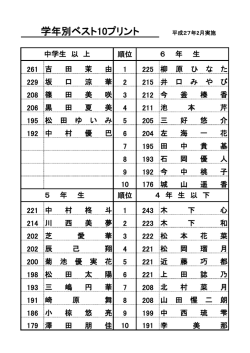 学年別ベスト10プリント 平成27年2月実施
中学生 以 上 順位 6 年 生
261 吉 田 茉 由 1 225 柳 原 ひ な た
229 坂 口 涼 華 2 215 井 口 み や び
208 篠 田 美 咲 3 212 今 釜 榛 香
206 黒 田 夏 美 4 211 池 本 芹
195 松 田 ゆ い み 5 205 三 好 悠 介
192 中 村 優 巴 6 204 左 海 一 花
7 195 田 中 貴 基
8 193 石 岡 優 人
9 192 今 中 桃 子
10 176 城 山 遥 香
5 年 生 順位 4 年 生 以 下
221 中 村 柊 斗 1 243 木 下 心
214 川 西 美 夢 2 223 木 下 和
202 芝 愛 華 3 222 松 本 花 菜
202 辰 己 翔 4 221 松 岡 瑠 月
200 菊 池 優 実 花 5 221 近 藤 巧 都
198 松 田 太 陽 6 221 上 田 誌 乃
193 三 嶋 円 華 7 208 北 村 菜 月
191 崎 原 舞 8 208 山 田 惺 二 朗
186 小 椋 悠 亮 9 199 中 西 琉 雫
179 澤 田 朋 佳 10 191 李 美 那